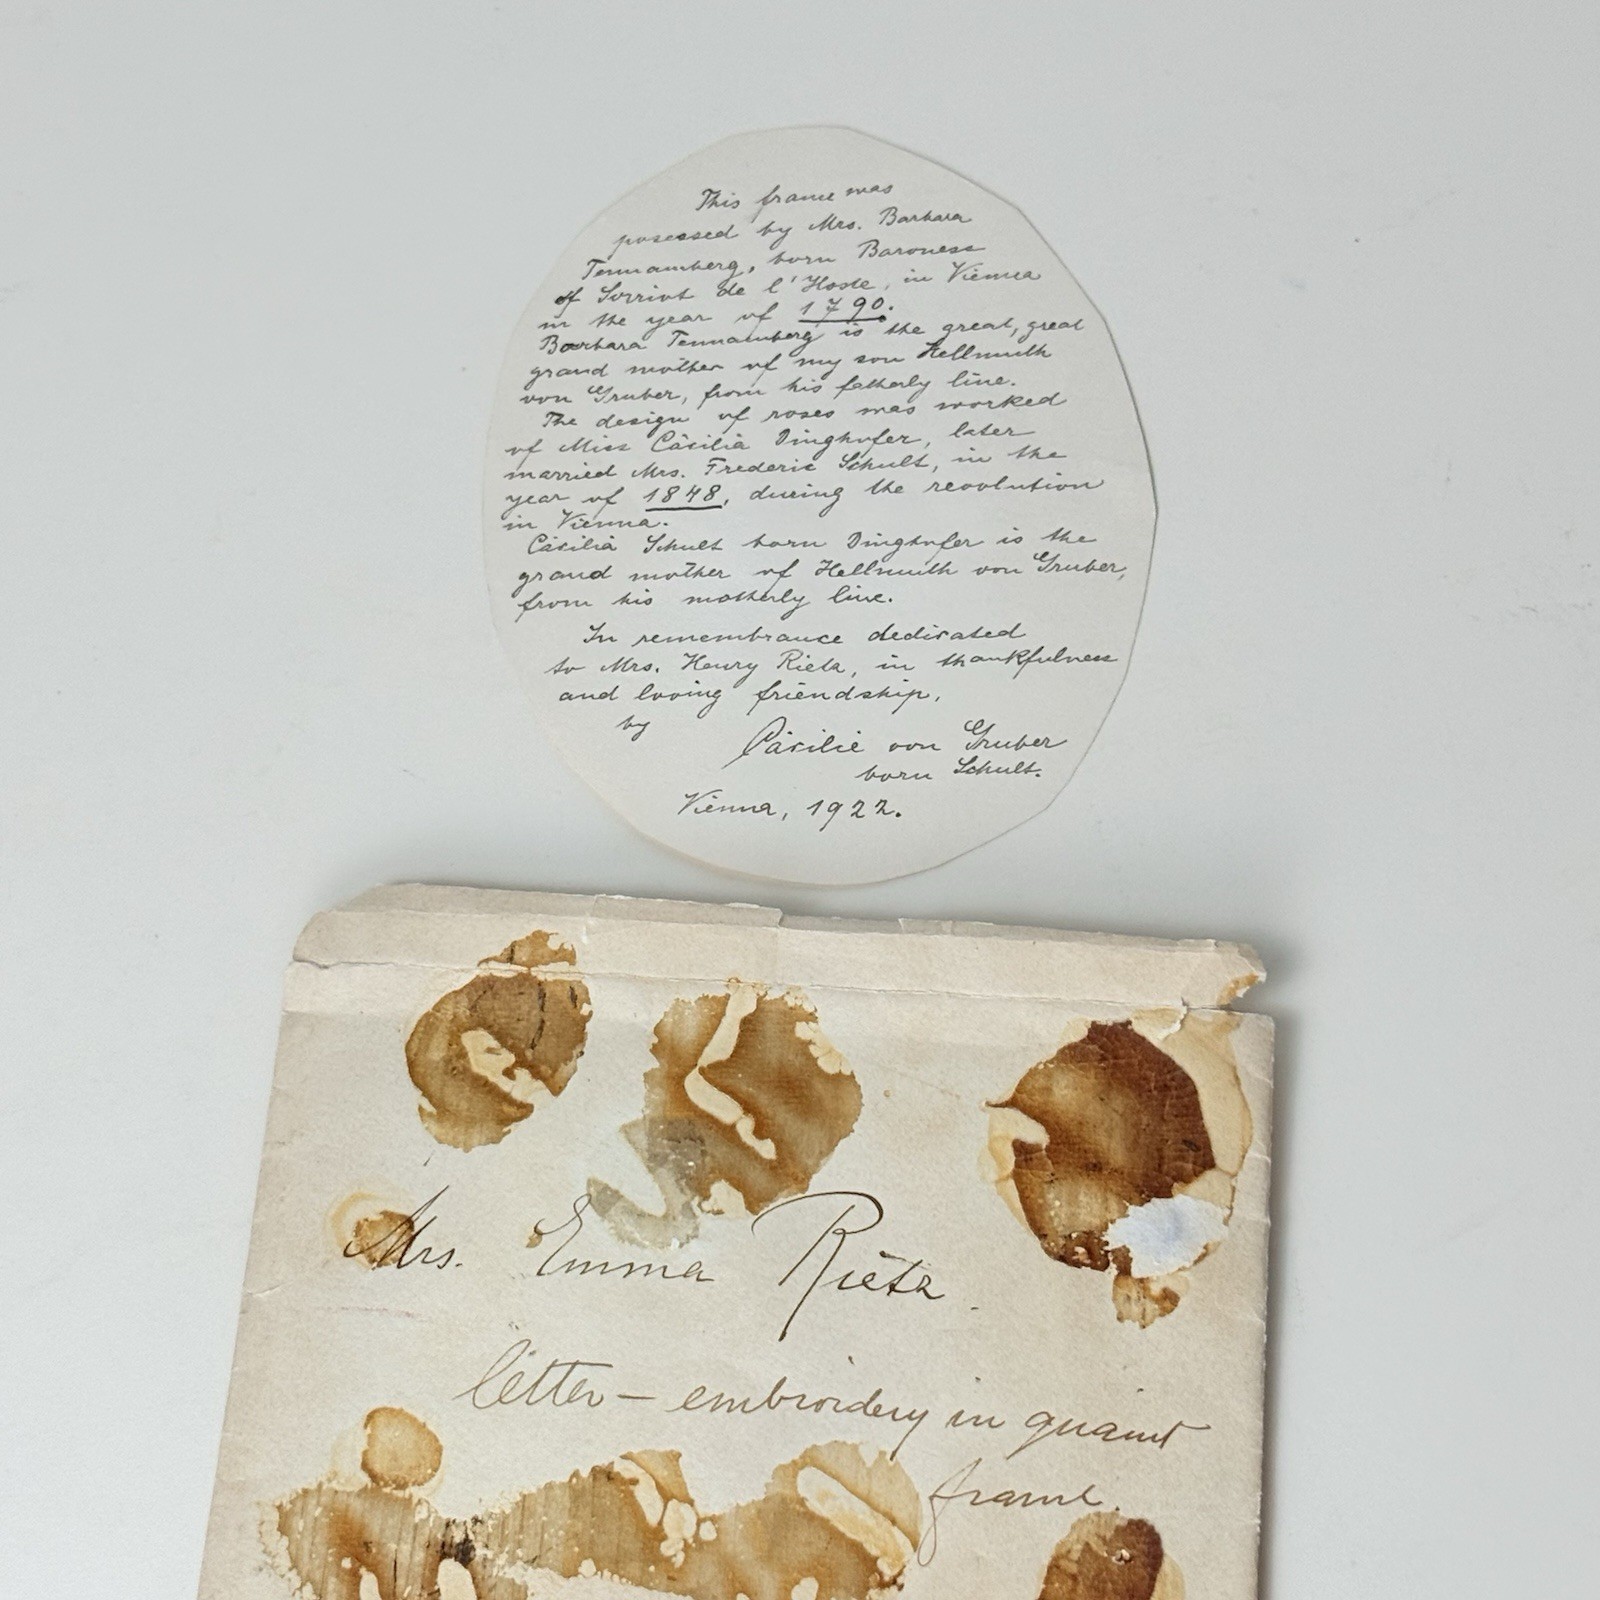 This frame was
posessed by Mrs. Barbara
Tennamberg, born Baroness
of Sorriot de l'Hoste, in Vienna
in the year of 1790.
Barbara Tennamberg is the great, great
grand mother of my son Hellmuth
von Gruber, from his fatherly line.
The design of roses was worked
of Miss Cäcilia Dinghofer, later
married Mrs. Frederic Schult, in the
year of 1848, during the revolution
in Vienna.
Cäcilia Schult born Dinghofer is the
grand mother of Hellmuth von Gruber,
from his motherly line.
In remembrance dedicated
to Mrs. Henry Rietz, in thankfulness
and loving friendship,
by
Cäcilie von Gruber
born Schult.
Vienna, 1922.
Mrs. Emma Rietz.
letter – embroidery in quaint
frame.